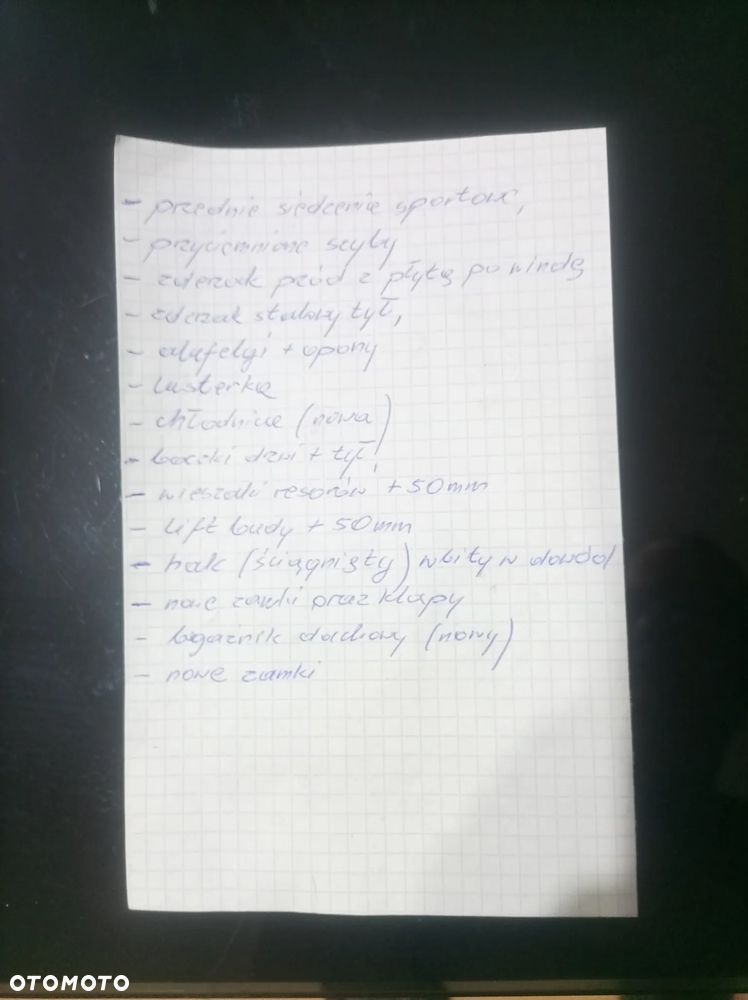 - przednie siedzenie sportowe,
- przyciemnione szyby
- zderzak przód z płytą po windę
- zderzak stalowy tył,
- alufelgi + opony
- lusterka
- chłodnice (nowa)
- boczki drzwi + tył,
- wieszaki resorów +50mm
- lift budy +50mm
- hak (ściągnięty) wbity w dowód
- nowe klapy
- bagażnik dachowy (nowy)
- nowe zamki
OTOMOTO